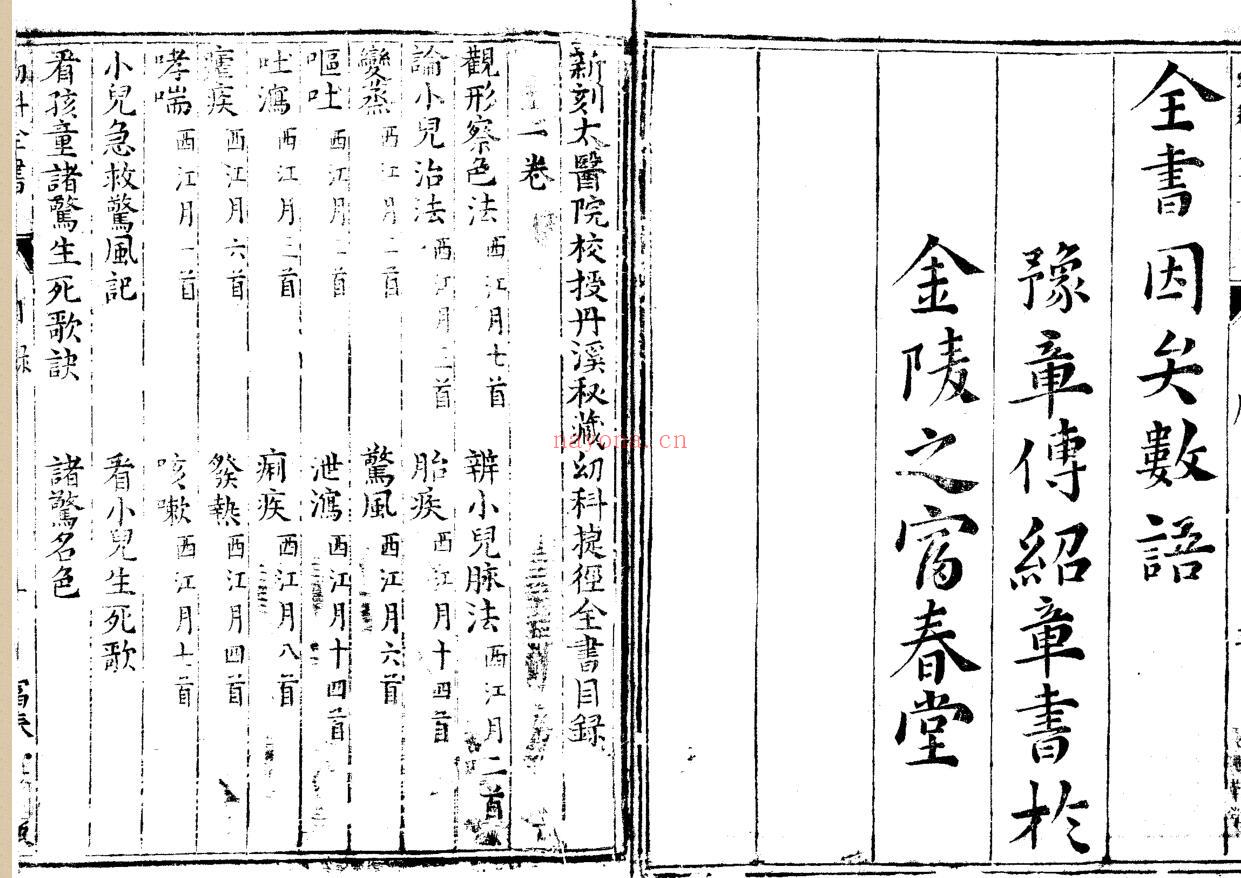 全書因矣數語
豫章傅紹章書於
金陵之富春堂
新刻太醫院校授丹溪秘藏幼科捷徑全書目錄
一卷
觀形察色法 西江月七首 辨小兒脉法 西江月二首
論小兒治法 西江月二首 胎疾 西江月十四首
變蒸 西江月二首 驚風 西江月六首
嘔吐 西江月二首 泄瀉 西江月十四首
吐瀉 西江月二首 痢疾 西江月八首
瘧疾 西江月六首 發熱 西江月四首
哮喘 西江月一首 咳嗽 西江月七首
小兒急救驚風記 看小兒生死歌
看孩童諸驚生死歌訣 諸驚名色
科全書 目錄
nayona.cn